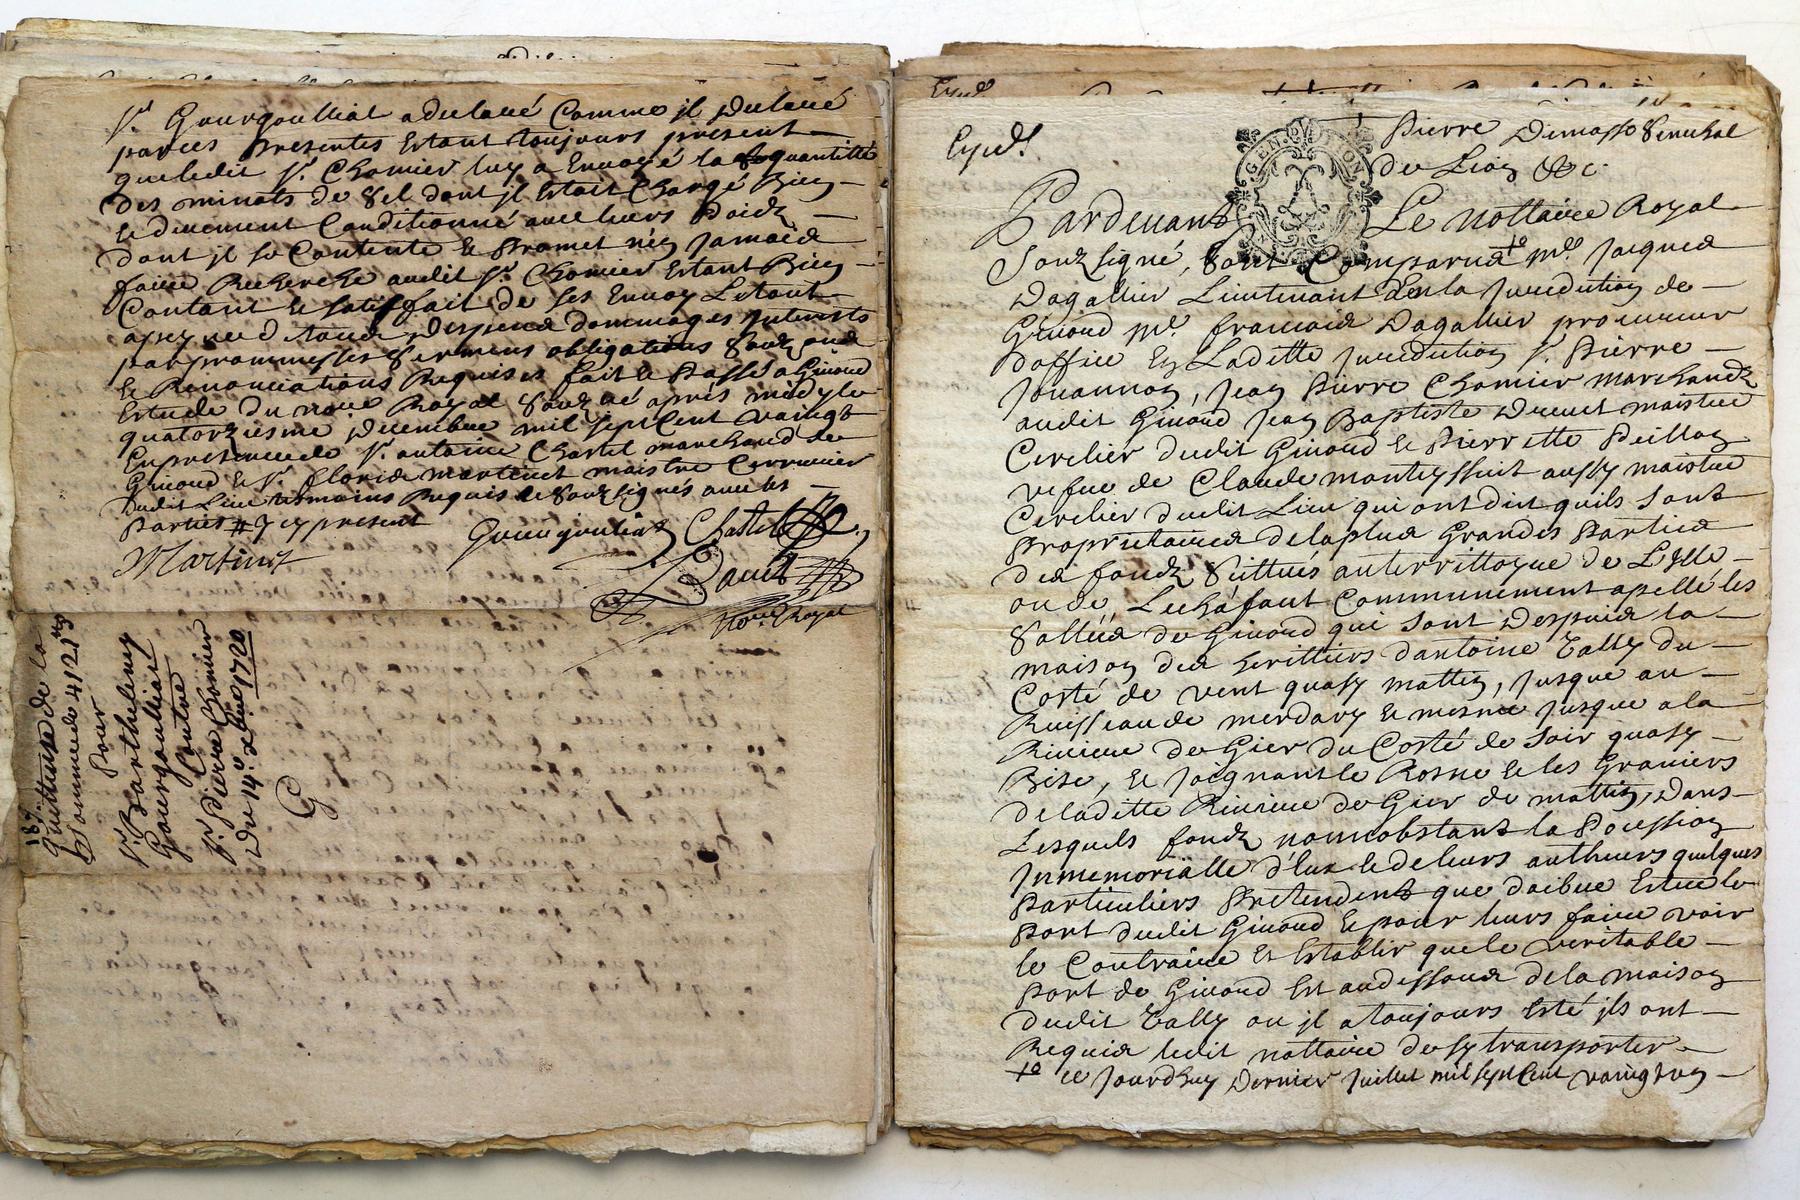 Sr. Gourgoulliat a declaré Comme jl declare
par ces presentes Estant toujours present
que ledit Sr. Chomier luy a Envoyé la quantitté
des minots de Sel dont jl Estoit Chargé Bien
le duement Conditionné avec leurs Poidz
dont jl se Contente & Promet n'en jamais
faire Recherche audit Sr. Chomier Estant Bien
Contant & satisfait de ses Envoy Le tout
a peyne de tous despens dommages jnterests
par prommesses Sermens obligations Soumis
& Renonciations Requises fait & Passé a Givord
Estude du nore Royal Soubzné aprés midy le
quatorziesme Decembre mil sept Cent vaingt
En presence de Sr. antoine Chastel marchand de
Givord & Sr. floris martinet maistre Serrurier
dudit Lieu tesmoins Requis & Soubzsignés avec les
Parties # 7 cy present
Gourgouliat Chastel
Martinet
nore Royal
187.
quittance de la
Somme de 4125
Pour
Sr. Barthelemy
Gourgoulliat
Contre
Sr. Pierre Chomier
Du 14e. xbre 1720
Expd.
Pierre Dimasso Senechal
de Lion &c.
Pardevant Le nottaire Royal
Soubzsigné, Sont Comparus +e Me. Jacques
Dagallier Lieutenant En la Jurediction de
Givord Me. francois Dagallier procureur
d'office En Laditte Jurediction Sr. Pierre
Jouannon, Jean Pierre Chomier marchandz
audit Givord Jean Baptiste Ducret maistre
Cerclier dudit Givord & Pierrette Peillon
vefve de Claude monteyssuit aussy maistre
Cerclier dudit Lieu qui ont dit quils Sont
Proprietaires de la plus Grandes Parties
des fondz Scittués au territtoyre de L'Isle
ou de Lechafaut Communement apellé les
Sallées de Givord qui Sont Despuis la
maison des herittiers d'antoine Vally du
Costé de vent quasy mattin, Jusque au
Ruisseau de merdary & mesme Jusque a la
Riviere de Gier du Costé de Soir quasy
Bise, & Joignant le Rosne & les Graviers
de laditte Riviere de Gier de mattin, Dans
Lesquels fondz nonnobstant la Possession
Jnmemorialle d'eux & de leurs autheurs quelques
Particuliers Prétendent que doibve Estre le
Port dudit Givord & pour leurs faire voir
le Contraire Et Establir que le veritable
Port de Givord Est audessous de la maison
dudit Vally ou jl a toujours Esté jls ont
Requis ledit nottaire de sy transporter
+e ce Jourdhuy Dernier Juillet mil sept Cent vaingt un